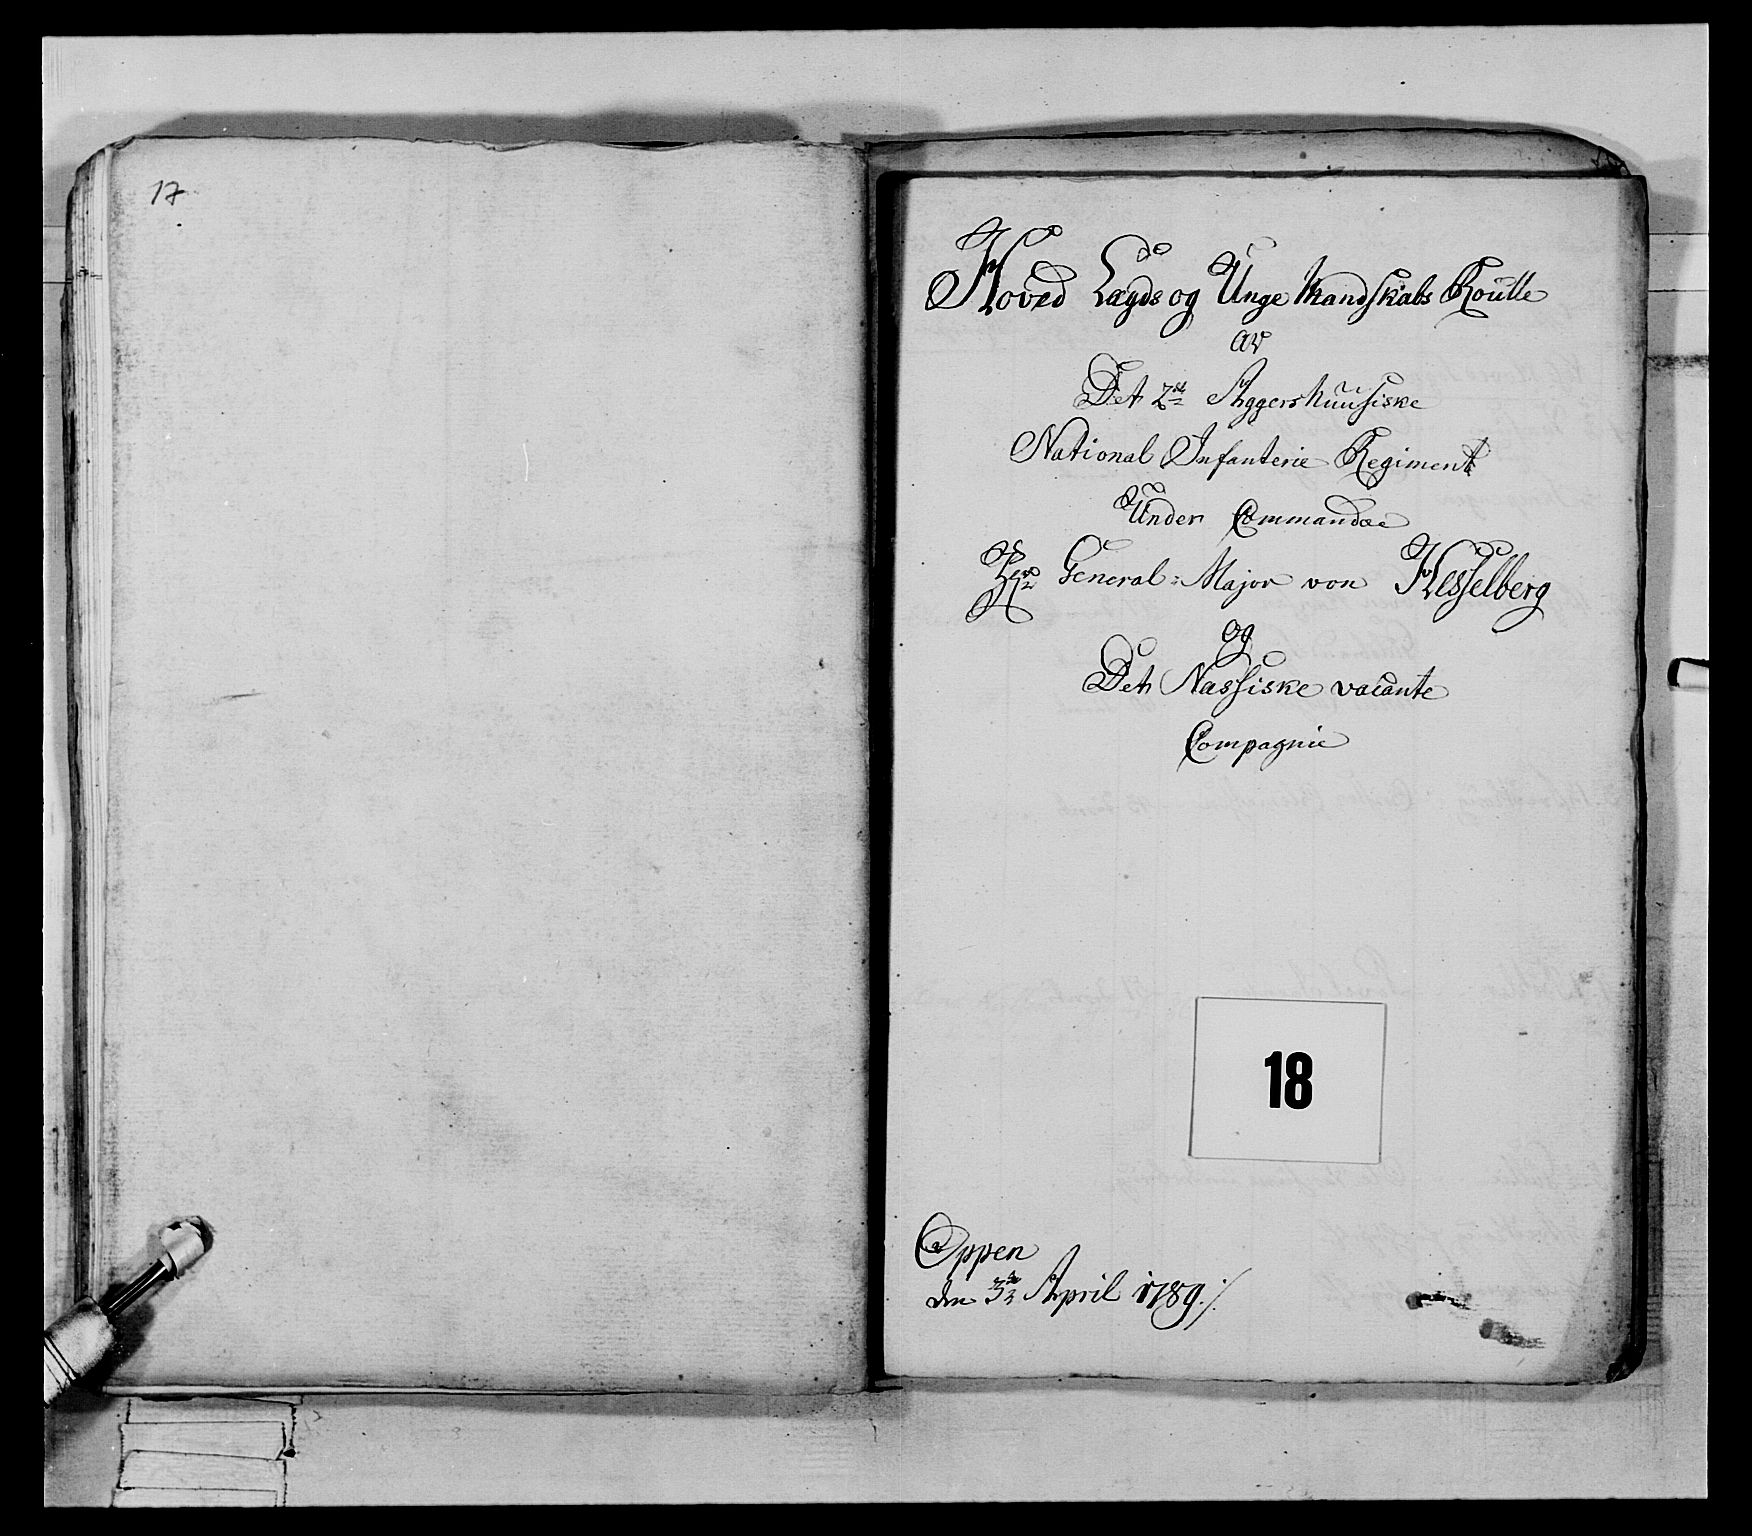 17
Hoved Lægds og Unge Mandskabs Roulle
av
Det 2de Aggershuusiske
National Infanterie Regiment
Under Commandoe
Hrr General-Major von Hesselberg
og
Det Næssiske vacante
Compagnie
18
Oppen
den 3de April 1789./.